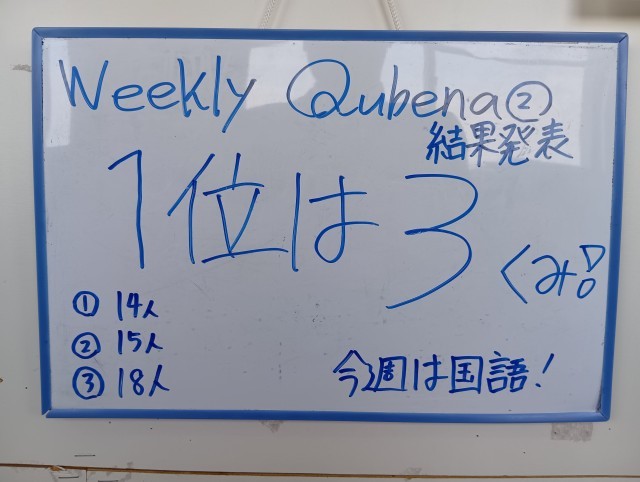 Weekly Qubena②
結果発表
1位は3くみ!
① 14人
② 15人
③ 18人
今週は国語!